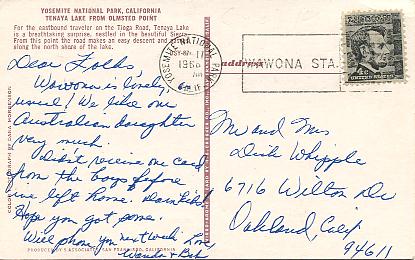 YOSEMITE NATIONAL PARK, CALIFORNIA
TENAYA LAKE FROM OLMSTED POINT
For the eastbound traveler on the Tioga Road, Tenaya Lake
is a breathtaking surprise, nestled in the beautiful Sierra.
From this point the road makes an easy descent and
along the north shore of the lake.
Dear Folks
Wawona is lovely,
usual! We like our
Australian daughter
very much.
Didn't receive one card
from the boys before
we left home.
Hope you got some.
Will phone you next week. Love
Wanda + Bob
PRODUCED BY S ASSOCIATES SAN FRANCISCO, CALIFORNIA
COLOR PHOTOGRAPH BY
YOSEMITE NATIONAL PARK
1968
WAWONA STA.
address
UNITED STATES
Mr and Mrs
Dick Whipple
6716 Wilton Dr
Oakland, Calif
94611